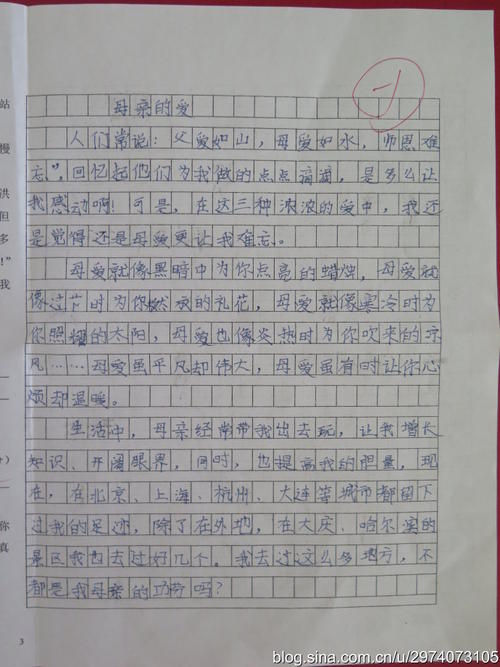 站
慢
洪
但
多
!"
我
)
你
真
3
-1
母亲的爱
人们常说：父爱如山，母爱如水，师恩难
忘"，回忆起他们为我做的点点滴滴，是多么让
我感动啊！可是，在这三种浓浓的爱中，我还
是觉得还是母爱更让我难忘。
母爱就像黑暗中为你点亮的蜡烛，母爱就
像过节时为你燃放的礼花，母爱就像寒冷时为
你照耀的太阳，母爱也像炎热时为你吹来的凉
风……母爱虽平凡却伟大，母爱虽有时让你心
烦却温暖。
生活中，母亲经常带我出去玩，让我增长
知识、开阔眼界，同时，也提高我的胆量，现
在，在北京、上海、杭州、大连等城市都留下
过我的足迹，除了在外地，在大庆、哈尔滨的
景区我也去过好几个。我去过这么多地方，不
都是我母亲的功劳吗？
blog.sina.com.cn/u/2974073105